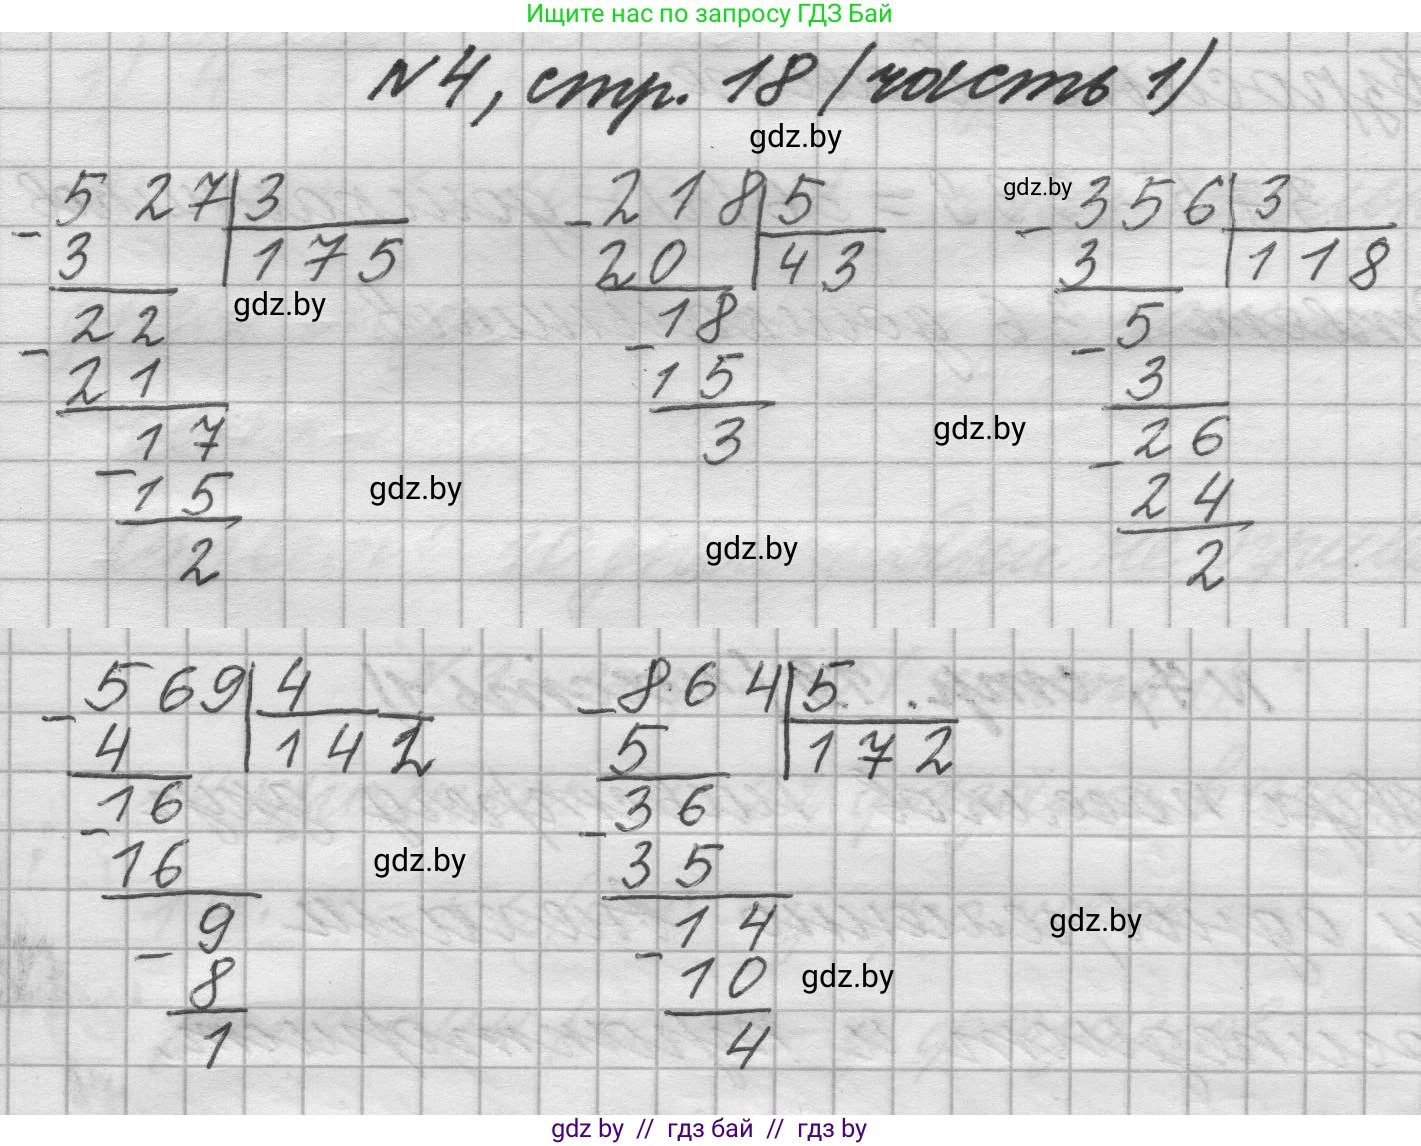 Ищите нас по запросу ГДЗ Бай
№4, стр. 18 (часть 1)
gdz.by
527 | 3
- 3
175
gdz.by
22
- 21
17
- 15
2
gdz.by
218 | 5
- 20
43
18
- 15
3
gdz.by
gdz.by
gdz.by
356 | 3
- 3
118
5
- 3
26
- 24
2
569 | 4
- 4
142
16
- 16
9
- 8
1
gdz.by
864 | 5
- 5
172
36
- 35
14
- 10
4
gdz.by
gdz.by
gdz.by // гдз бай // гдз by